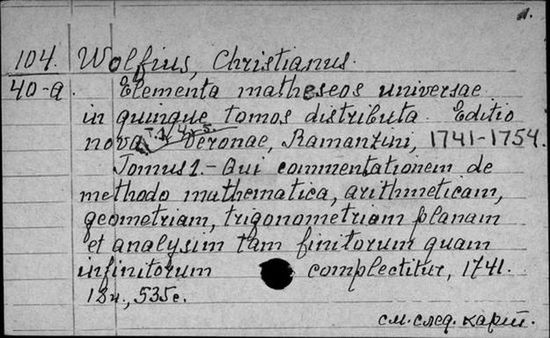 1.
104 Wolfius, Christianus.
40-a. Elementa matheseos universae
in quinque tomos distributa. Editio
nova. Veronae, Ramanzini, 1741-1754.
Tomus 1.- Qui commentationem de
methodo mathematica, arithmeticam,
geometriam, trigonometriam planam
et analysim tam finitorum quam
infinitorum complectitur, 1741.
535c.
см. след. карт.